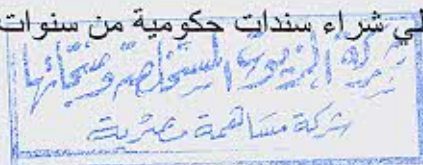 لي شراء سندات حكومية من سنوات
شركة الزيوت المستخلصة ومنتجاتها
شركة مساهمة مصرية